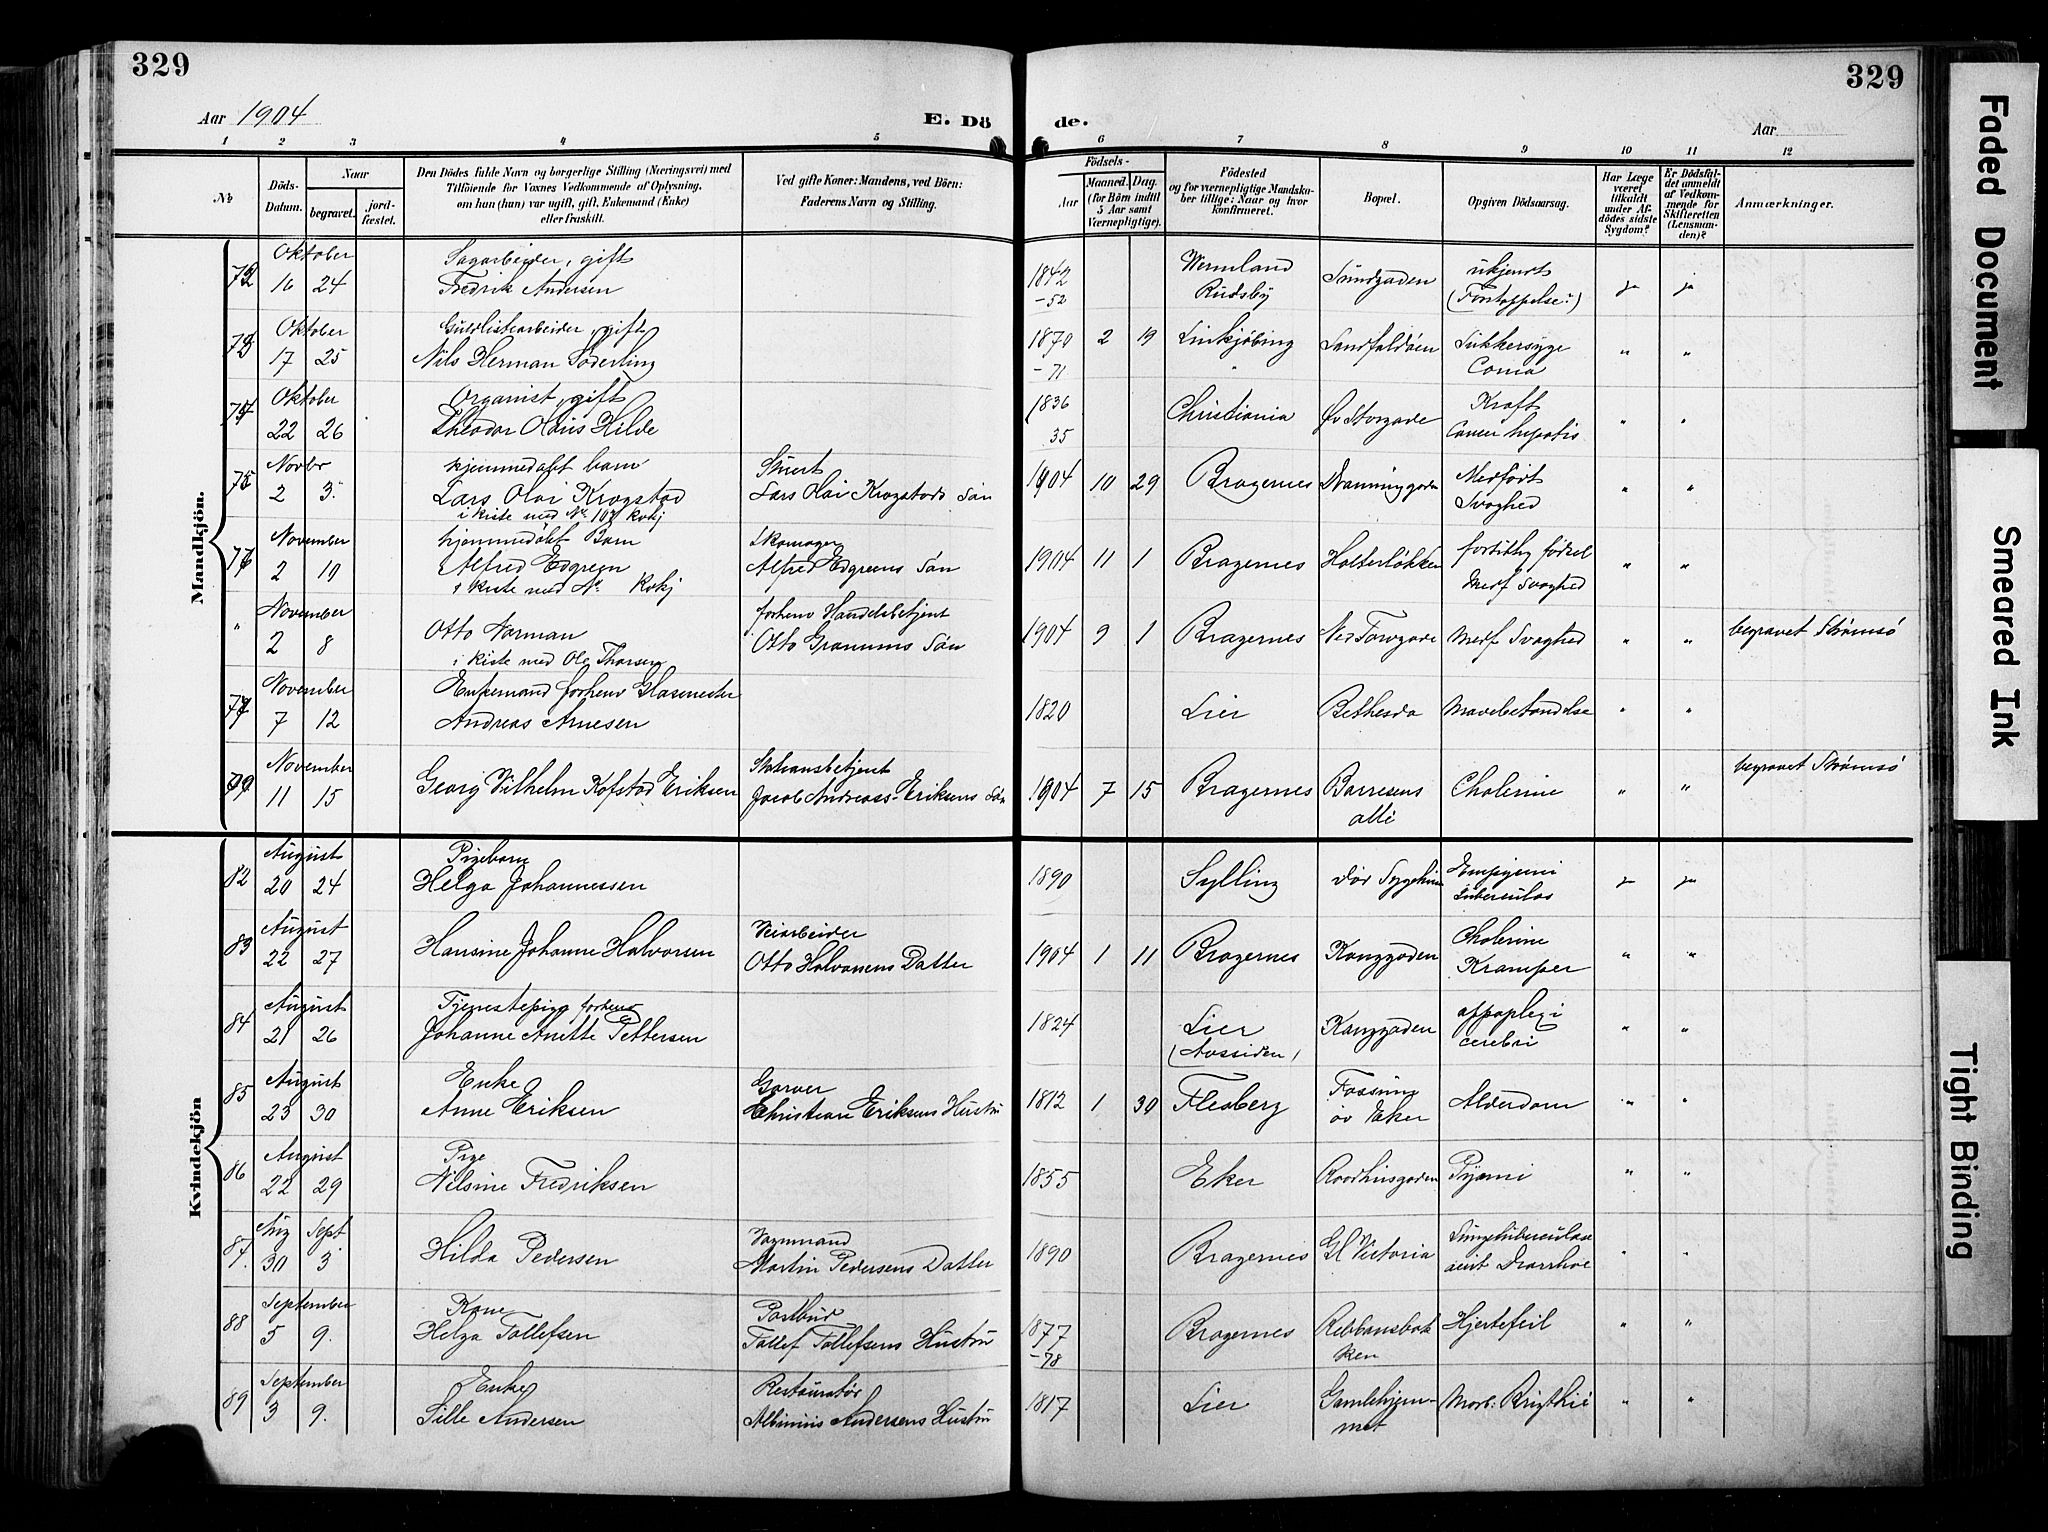 329
329
Aar 1904
E. Dö
de.
Aar
1 2 3 4 5 6 7 8 9 10 11 12
№
Döds-
Datum.
Naar
begravet.
jord-
fæstet.
Den Dödes fulde Navn og borgerlige Stilling (Næringsvei) med
Tilföiende for Voxnes Vedkommende af Oplysning,
om han (hun) var ugift, gift, Enkemand (Enke)
eller fraskilt.
Ved gifte Koner: Mandens, ved Börn:
Faderens Navn og Stilling.
Födsels-
Aar
Maaned.
Dag.
(for Börn indtil
5 Aar samt
Værnepligtige).
Födested
og for værnepligtige Mandska-
ber tillige: Naar og hvor
konfirmeret.
Bopæl.
Opgiven Dödsaarsag.
Har Læge
været
tilkaldt
under Af-
dödes sidste
Sygdom?
Er Dödsfal-
det anmeldt
af Vedkom-
mende for
Skifteretten
(Lensman-
den)?
Anmærkninger.
Mandkjön.
Oktober Sagarbeider, gift Wermland ukjendt
16 24 Fredrik Andersen 1842 -52 Rudsby Sundgaden (Forstoppelse?) ja ja
Oktober Guldlistearbeider, gift
17 25 Nils Herman Söderling 1870 -71 2 19 Linkjöbing Sukkersyge Coma " "
Oktober Organist, gift
22 26 Theodor Olaus Hilde 1836 35 Christiania Øv Storgade Kræft Cancer hepatis " "
75 Novbr hjemmedøbt barn
2 3. Lars Olai Krogstad Lars Olai Krogstads Søn 1904 10 29 Bragernes Medfødt Svaghed " "
i kiste med No 107 kvkj
76 November hjemmedøbt Barn Skomager
2 10 Alfred Edgren Alfred Edgrens Søn 1904 11 1 Bragernes Holterløkken fortidlig fødsel Medf Svaghed " "
i kiste med No Kvkj
" November forhenv Handelsbetjent
2 8 Otto Norman Otto Granums Søn 1904 9 1 Bragernes Ned Torvgade Medf Svaghed " " begravet Strømsø
i kiste med Ole Thorsen
77 November Enkemand forhenv Glasmester
7 12 Andreas Arnesen 1820 Lier Bethesda Mavebetændelse " "
November Stationsbetjent
11 15 Georg Vilhelm Kofstad Eriksen Jacob Andreas Eriksens Søn 1904 7 15 Bragernes Børresens alle Cholerine " " begravet Strømsø
Kvindekjön
82 August Pigebarn
20 24 Helga Johannessen 1890 Sylling Empyemi tuberculos ja ja
83 August Veiarbeider
22 27 Hansine Johanne Halvorsen Otto Halvorsens Datter 1904 1 11 Bragernes Konggaden Cholerine Kramper " "
84 August Tjenestepige forhenv
21 26 Johanne Anette Pettersen 1824 Lier Konggaden appoplexi cerebri " "
85 August Enke Garver
23 30 Anne Eriksen Christian Eriksens Hustru 1812 1 30 Flesberg Fossum øv Eker Alderdom " "
86 August Pige
22 29 Nilsine Fredriksen 1855 Eker Raadhusgaden Pyæmi " "
87. Aug Sept Vognmand
30 3 Hilda Pedersen Martin Pedersens Datter 1890 Bragernes Gl Victoria Lungetuberculose " "
88 September Kone Postbud
5 9. Helga Tollefsen Tollef Tollefsens Hustru 1877 -78 Bragernes Rebbansbakken Hjertefeil " "
89 September Enke Restauratør
3 9. Sille Andersen Albinius Andersens Hustru 1817 Lier Gamlehjemmet Morb: Brigthii " "
Faded Document
Smeared Ink
Tight Binding